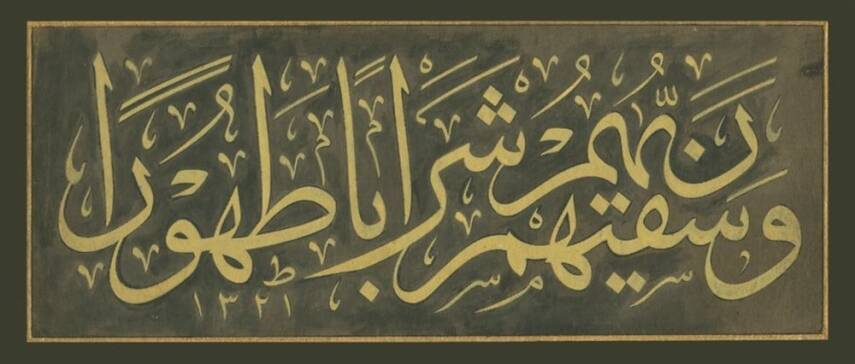 وَسَقٰيهُمْ رَبُّهُمْ شَرَابًا طَهُورًا
١٣٢١